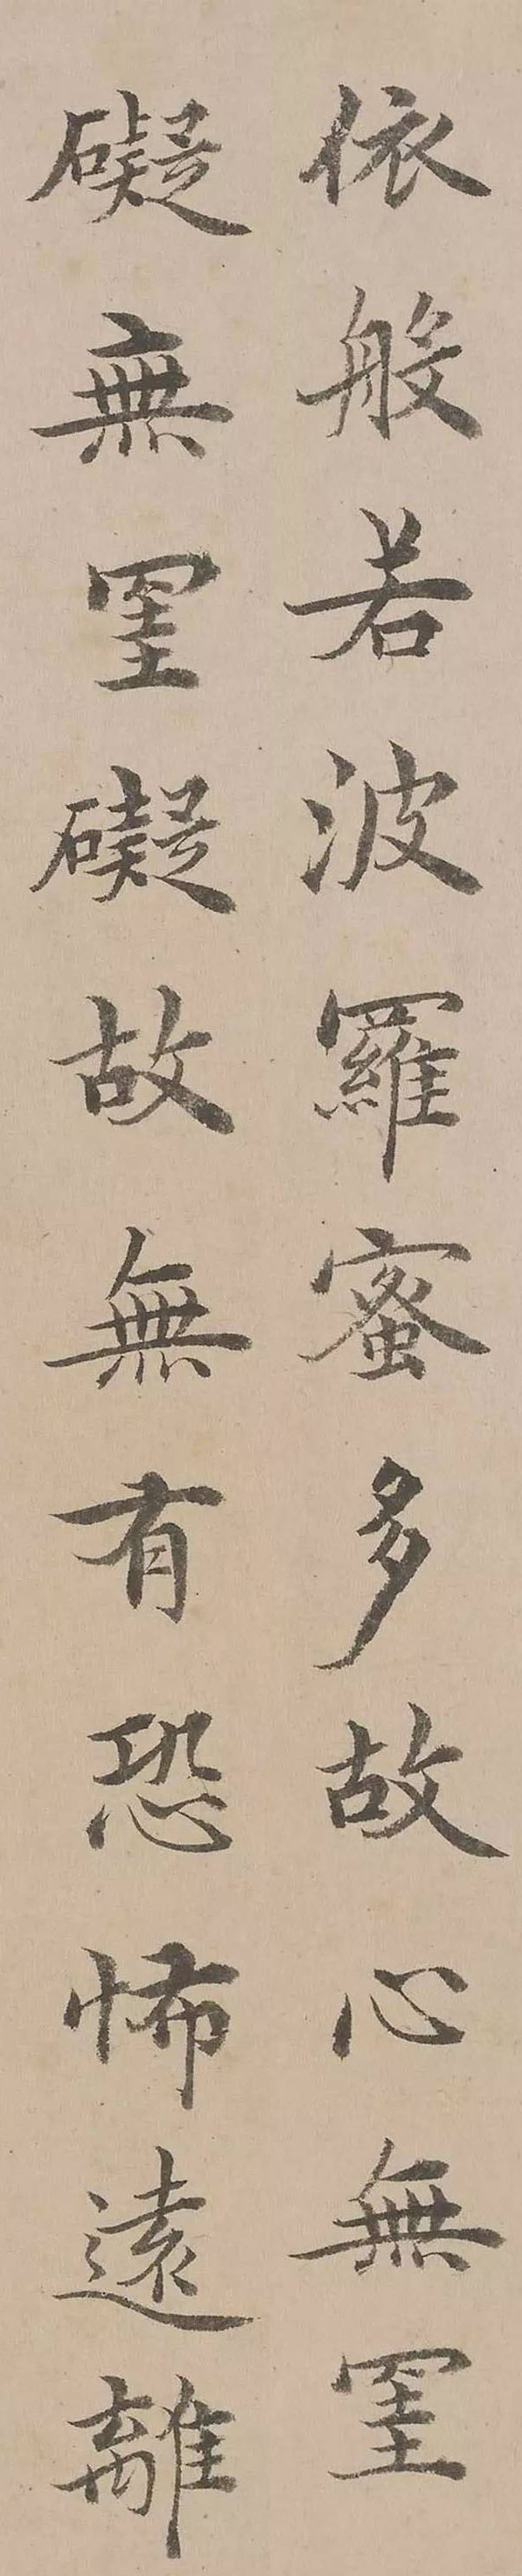 依般若波羅蜜多故心無罣
礙無罣礙故無有恐怖遠離